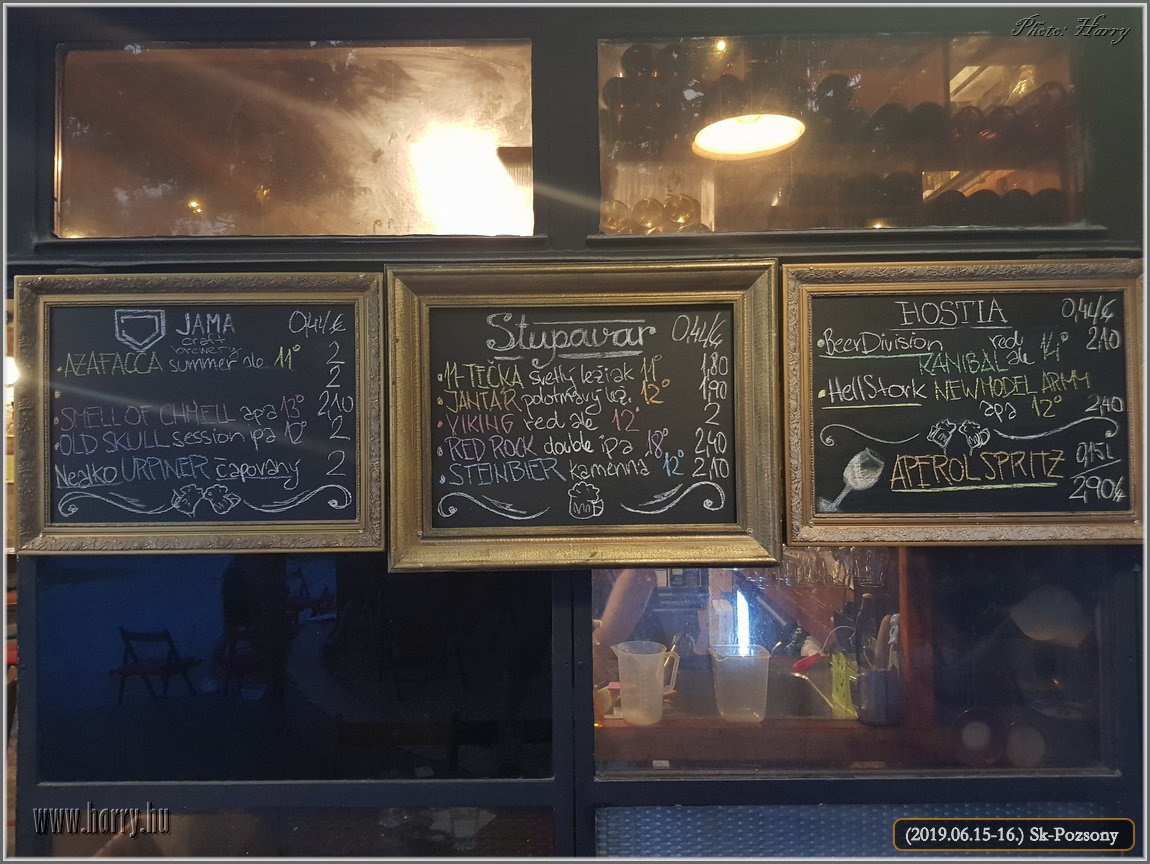 Photo: Harry
JAMA 0,4l/€
craft
brewery
• AZAFACCA summer ale 11° 2
2
• SMELL OF CHMELL apa 13° 2,10
• OLD SKULL session ipa 12° 2
Nealko URPINER čapovaný 2
Stupavar 0,4l/€
• 11-TEČKA švetlý ležiak 11° 1,80
• JANTÁR polotmavý lež. 12° 1,90
• VIKING red ale 12° 2
• RED ROCK double ipa 18° 2,40
• STEINBIER kamenná 12° 2,10
HOSTIA 0,4l/€
• BeerDivision red 2,10
KANIBAL ale 14°
• HellStork NEW MODEL ARMY
apa 12° 2,40
0,15l
APEROL SPRITZ
2,90€
www.harry.hu
(2019.06.15-16.) Sk-Pozsony